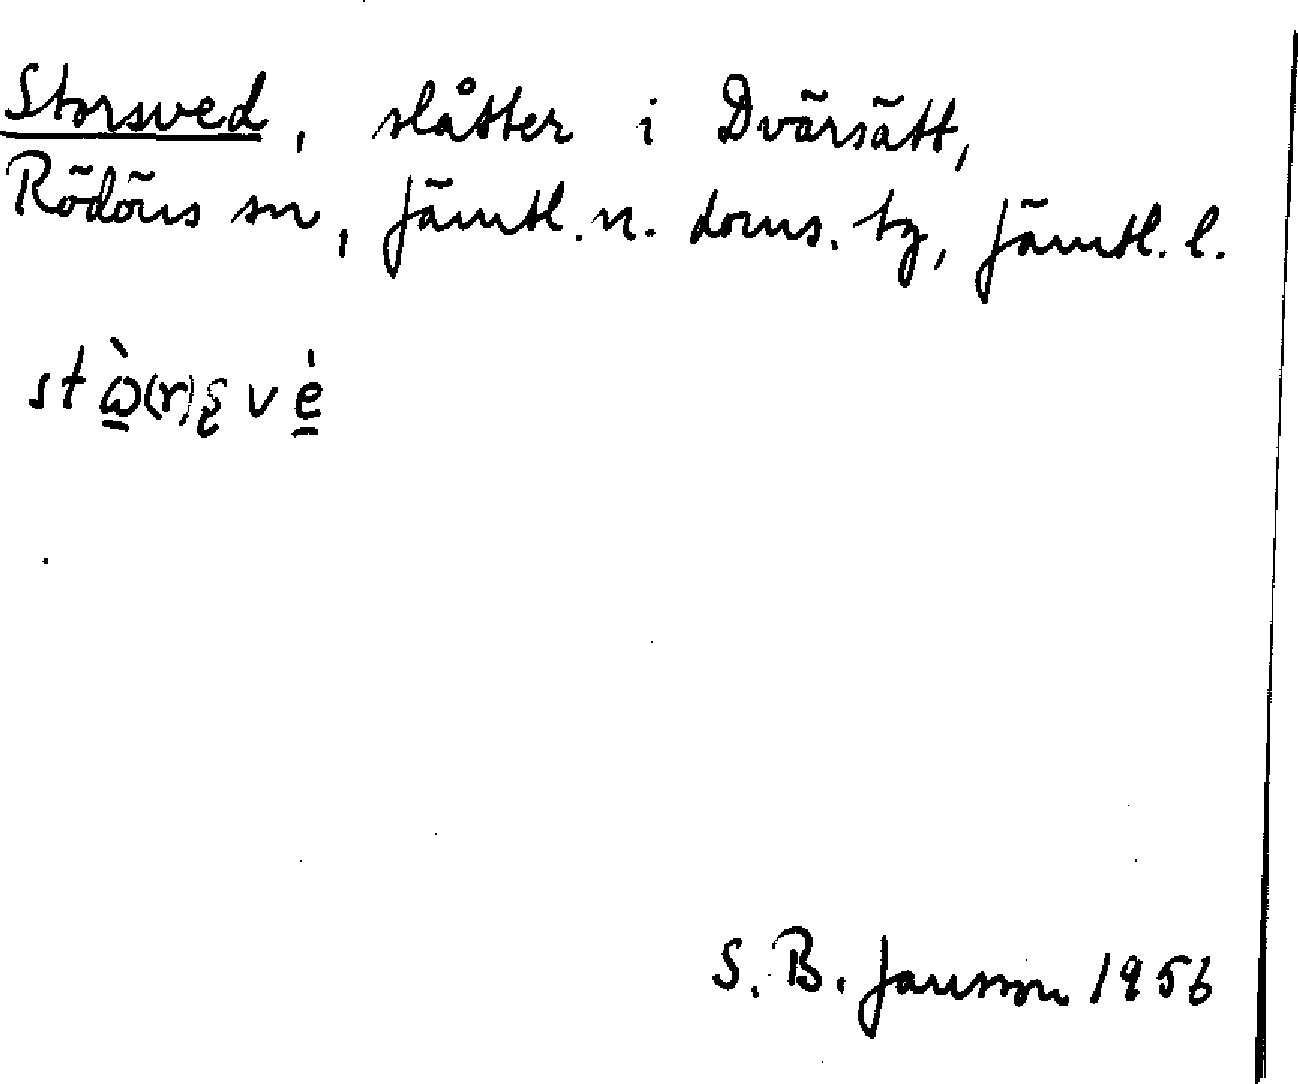 Storsved, slåtter i Dvärsätt,
Rödöns sn, Jämtl. n. doms. tg, Jämtl. l.
S. B. Jansson 1956